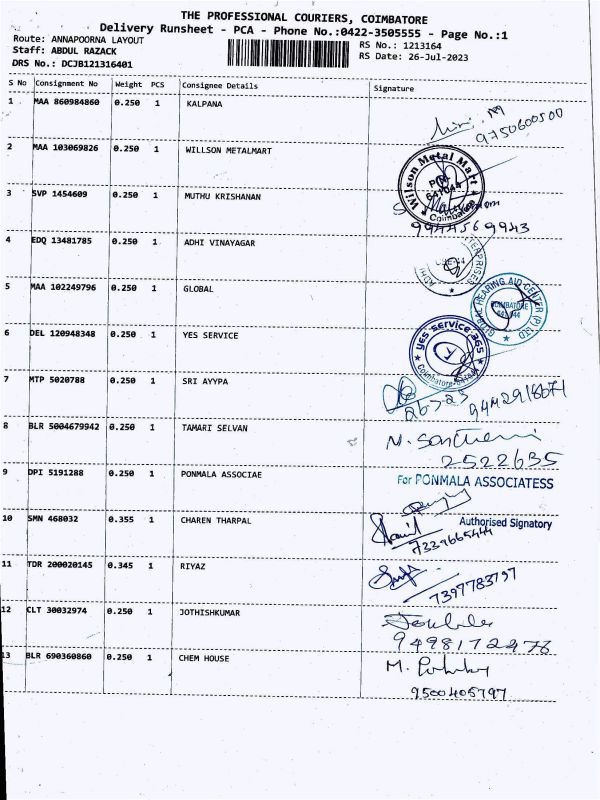 THE PROFESSIONAL COURIERS, COIMBATORE
Delivery Runsheet - PCA - Phone No.:0422-3505555 - Page No.:1
Route: ANNAPOORNA LAYOUT
Staff: ABDUL RAZACK
DRS No.: DCJB121316401
RS No.: 1213164
RS Date: 26-Jul-2023
S No Consignment No Weight PCS Consignee Details Signature
1 MAA 860984860 0.250 1 KALPANA
9750600500
2 MAA 103069826 0.250 1 WILLSON METALMART
Wilson Metal Mart
641044
Coimbatore
3 SVP 1454609 0.250 1 MUTHU KRISHANAN
9944569943
4 EDQ 13481785 0.250 1 ADHI VINAYAGAR
5 MAA 102249796 0.250 1 GLOBAL
GLOBAL HEARING AID CENTER (P) LTD
COIMBATORE
641 044
6 DEL 120948348 0.250 1 YES SERVICE
yes service 365
Coimbatore
7 MTP 5020788 0.250 1 SRI AYYPA
26-7-23
8 BLR 5004679942 0.250 1 TAMARI SELVAN
2522635
9 DPI 5191288 0.250 1 PONMALA ASSOCIAE
For PONMALA ASSOCIATESS
Authorised Signatory
10 SMN 468032 0.355 1 CHAREN THARPAL
7339665444
11 TDR 200020145 0.345 1 RIYAZ
7397783797
12 CLT 30032974 0.250 1 JOTHISHKUMAR
9498172476
13 BLR 690360860 0.250 1 CHEM HOUSE
9500405797